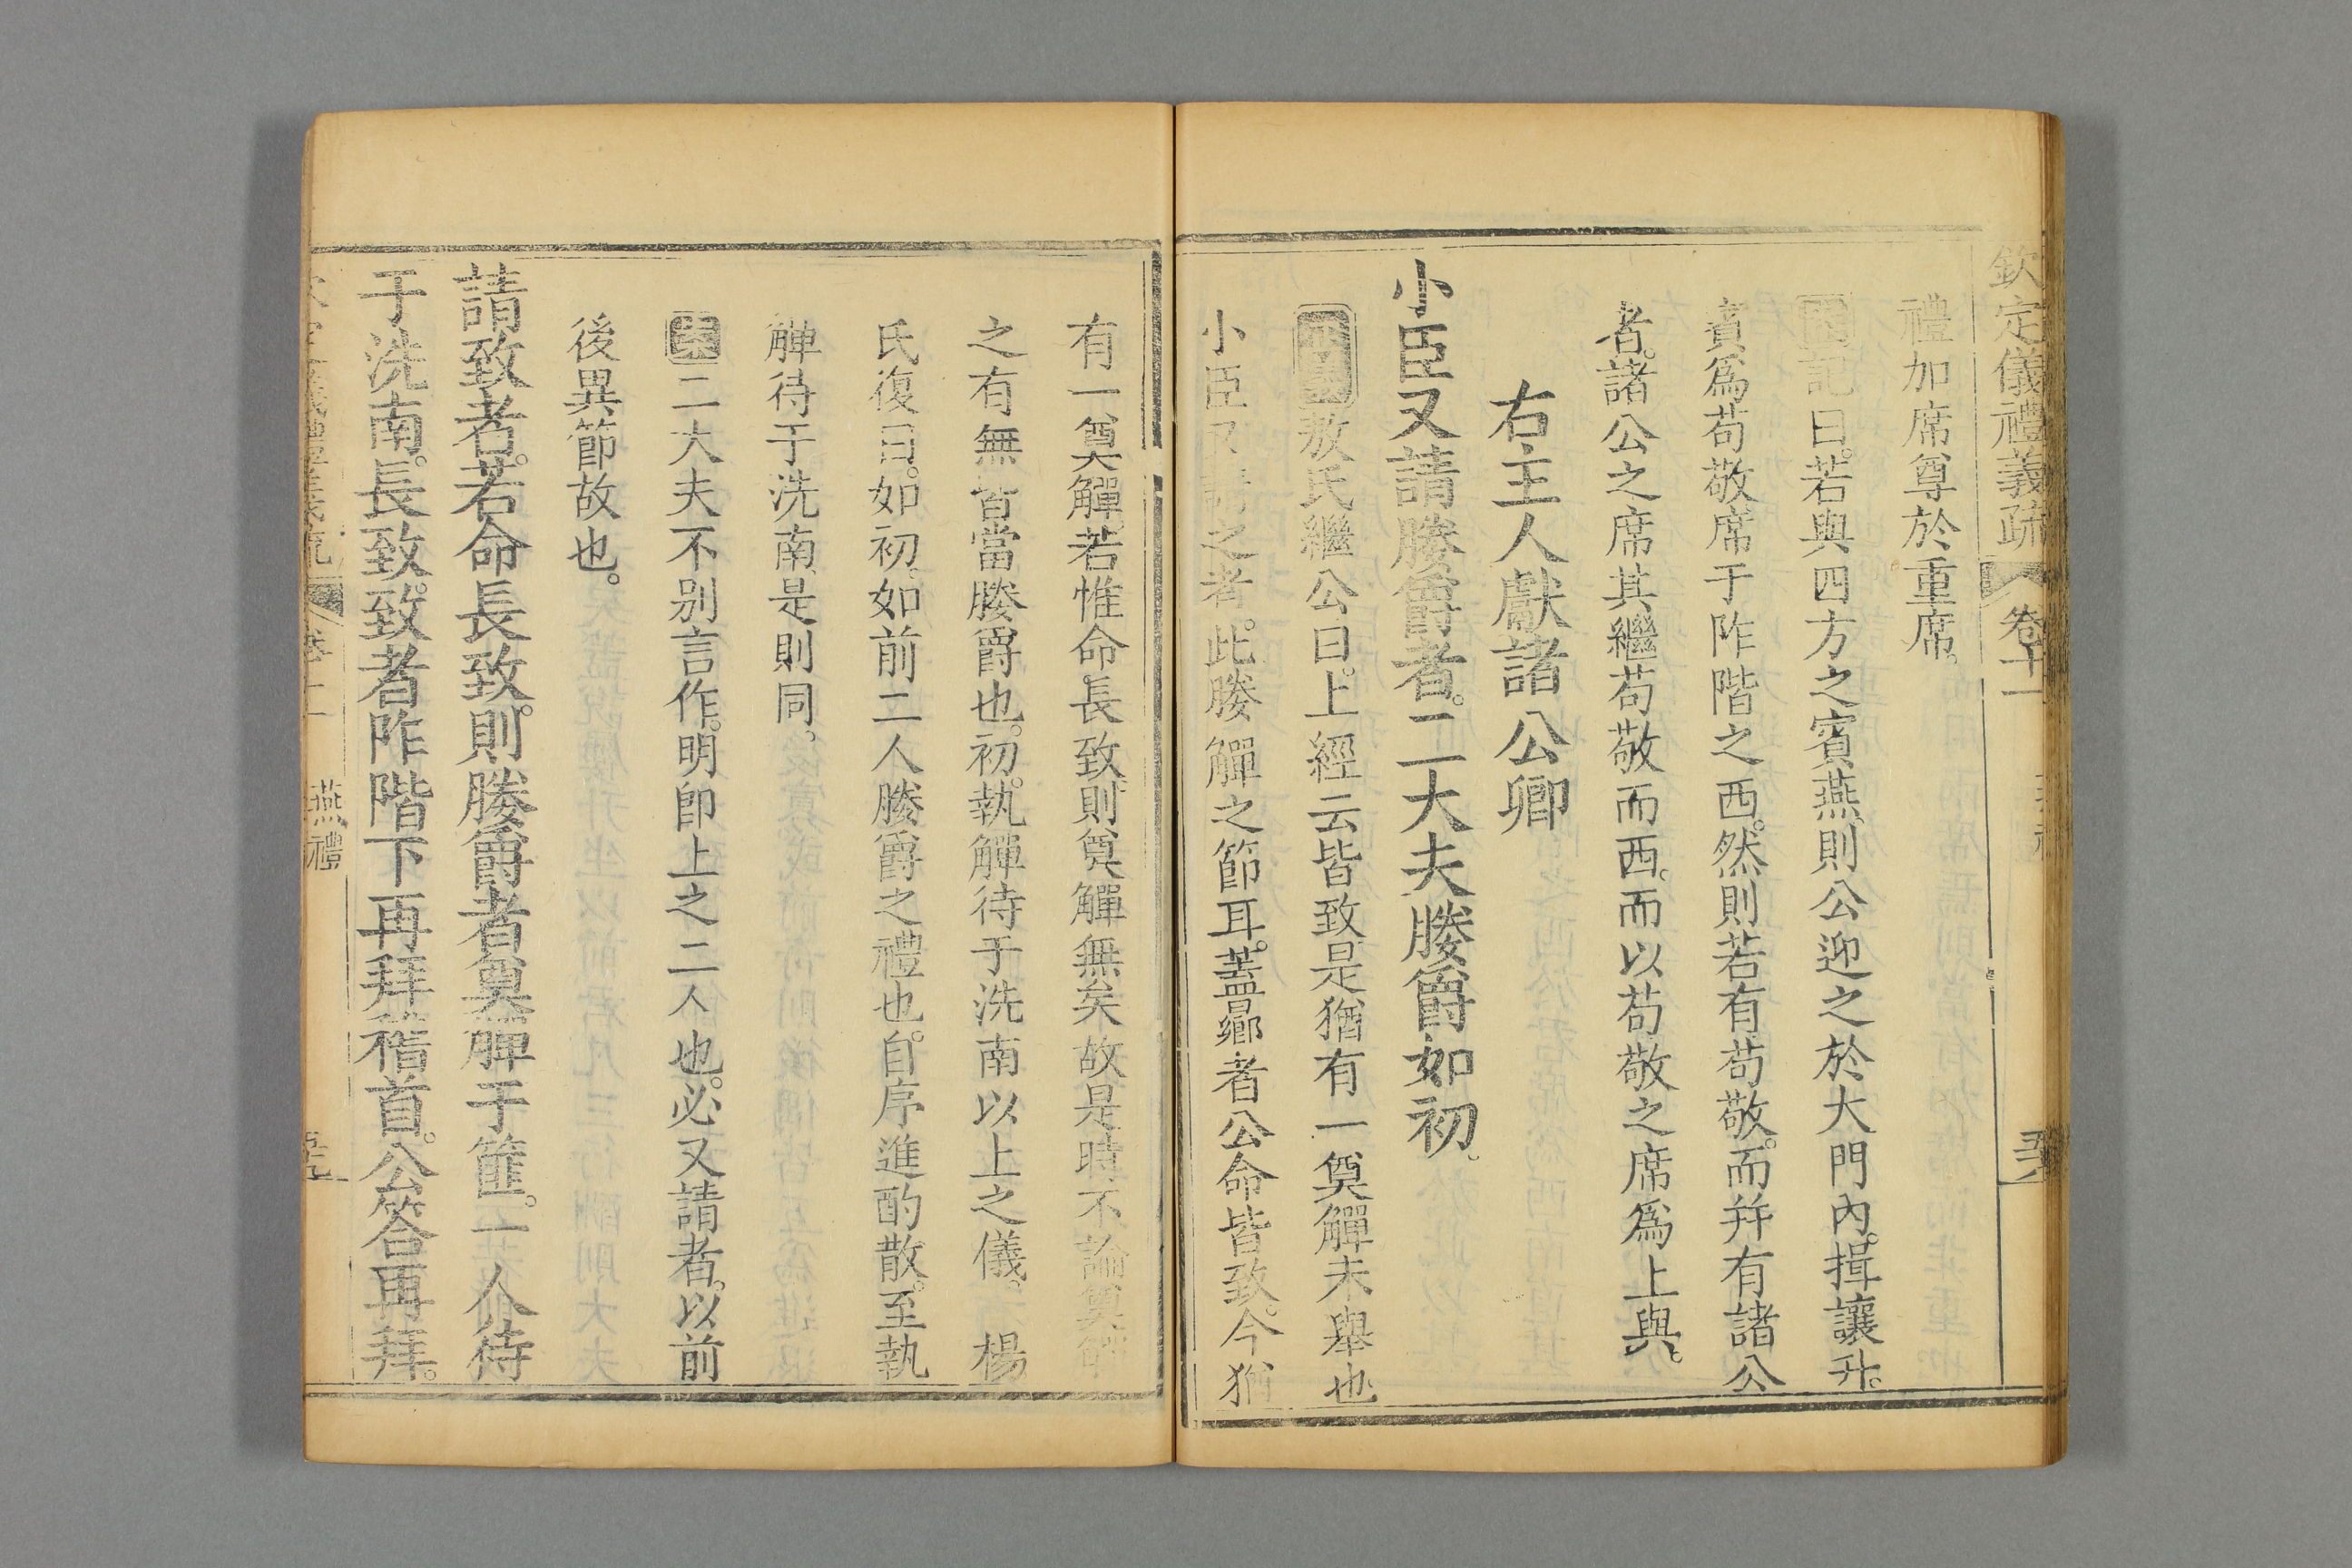 欽定儀禮義疏 卷十一
禮加席尊於重席。
記曰。若與四方之賓燕。則公迎之於大門內。揖讓升。
賓爲苟敬席于阼階之西。然則若有苟敬。而并有諸公
者。諸公之席其繼苟敬而西。而以苟敬之席爲上與。
右主人獻諸公卿
小臣又請媵爵者。二大夫媵爵如初。
敖氏繼公曰。上經云皆致是猶有一奠觶未舉也
小臣又請之者。此媵觶之節耳。蓋曏者公命皆致。今猶
有一奠觶。若惟命長致。則奠觶無矣。故是時不論奠觶
之有無。皆當媵爵也。初。執觶待于洗南以上之儀。 楊
氏復曰。如初。如前二人媵爵之禮也。自序進酌散。至執
觶待于洗南。是則同。
二大夫不別言作。明即上之二人也。必又請者。以前
後異節故也。
請致者。若命長致。則媵爵者奠觶于篚。一人待
于洗南。長致。致者阼階下再拜稽首。公答再拜。
燕禮